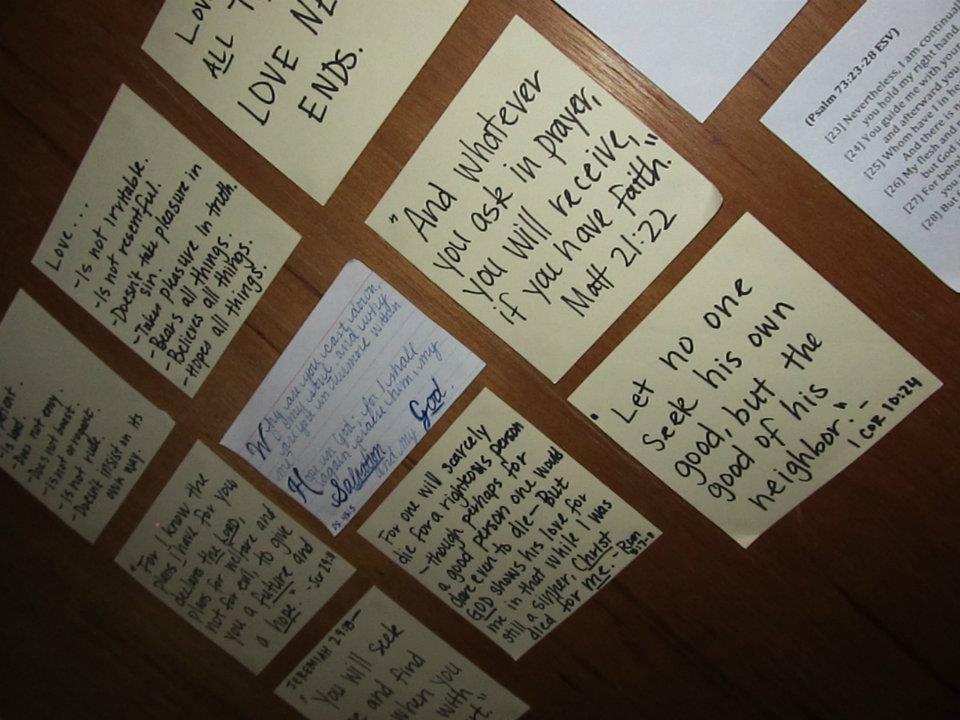 LOVE NE
ENDS.
"And Whatever
you ask in prayer,
you will receive,
if you have faith."
Matt 21:22
(Psalm 73:23-28 ESV)
[23] Nevertheless, I am continuall
you hold my right hand.
[24] You guide me with your
and afterward you
[25] Whom have I in he
And there is n
[26] My flesh and
but God i
[27] For behol
you
[28] But f
Love...
-Is not irritable.
-Is not resentful.
-Doesn't take pleasure in
sin.
-Takes pleasure in truth.
-Bears all things.
-Believes all things.
-Hopes all things.
Why are you cast down,
O my soul and why
are you in turmoil within
me
Hope in God: for I shall
again praise him, my
Salvation
and my God.
"Let no one
seek his own
good, but the
good of his
neighbor."
1 Cor 10:24
-Does not envy.
-Does not boast.
-Is not arrogant.
-Is not rude.
-Doesn't insist on its
own way.
"For I know the
plans I have for you
declares the LORD,
plans for welfare and
not for evil, to give
you a future and
a hope." -Jer 29:11
For one will scarcely
die for a righteous person
-though perhaps for
a good person one would
dare even to die- But
GOD shows his love for
me in that while I was
still a sinner, Christ
died for me. Rom
5:7-8
JEREMIAH 29:13-
"You will seek
me and find
when you
with